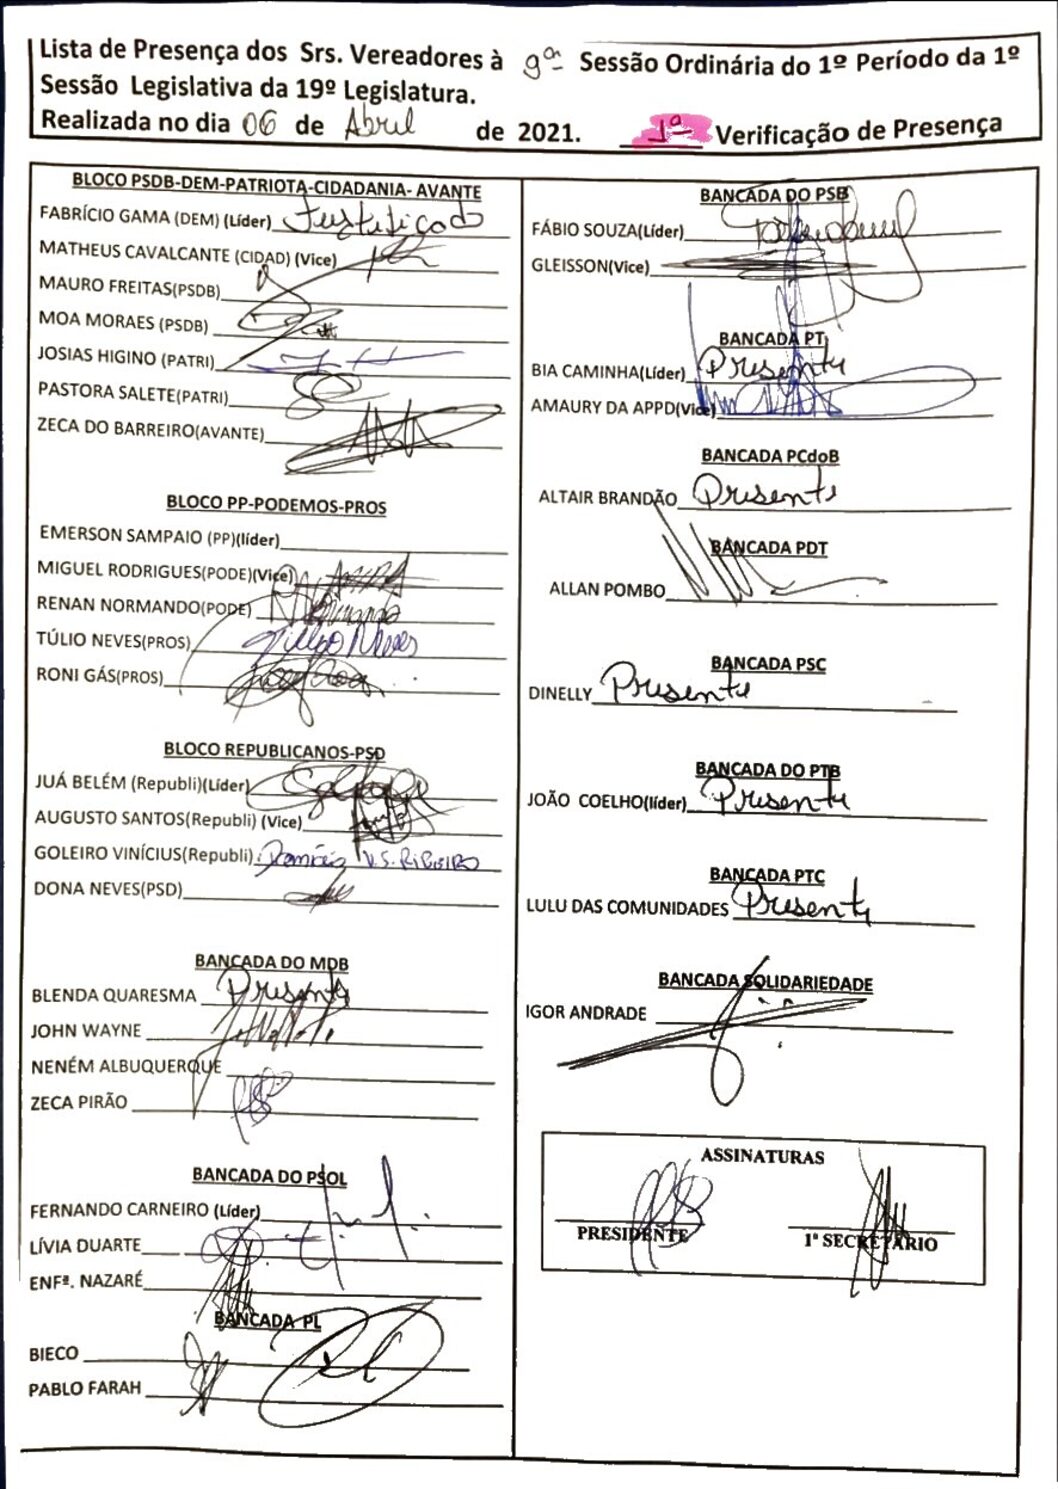 Lista de Presença dos Srs. Vereadores à 9ª Sessão Ordinária do 1º Período da 1º
Sessão Legislativa da 19º Legislatura.
Realizada no dia 06 de Abril de 2021. 1ª Verificação de Presença
BLOCO PSDB-DEM-PATRIOTA-CIDADANIA- AVANTE
FABRÍCIO GAMA (DEM) (Líder) Justificado
MATHEUS CAVALCANTE (CIDAD) (Vice)
MAURO FREITAS(PSDB)
MOA MORAES (PSDB)
JOSIAS HIGINO (PATRI)
PASTORA SALETE(PATRI)
ZECA DO BARREIRO(AVANTE)
BLOCO PP-PODEMOS-PROS
EMERSON SAMPAIO (PP)(líder)
MIGUEL RODRIGUES(PODE)(Vice)
RENAN NORMANDO(PODE)
TÚLIO NEVES(PROS) Túlio Neves
RONI GÁS(PROS)
BLOCO REPUBLICANOS-PSD
JUÁ BELÉM (Republi)(Líder)
AUGUSTO SANTOS(Republi) (Vice)
GOLEIRO VINÍCIUS(Republi) V.S. RIBEIRO
DONA NEVES(PSD)
BANCADA DO MDB
BLENDA QUARESMA Presente
JOHN WAYNE
NENÉM ALBUQUERQUE
ZECA PIRÃO
BANCADA DO PSOL
FERNANDO CARNEIRO (Líder)
LÍVIA DUARTE
ENFª. NAZARÉ
BANCADA PL
BIECO
PABLO FARAH
BANCADA DO PSB
FÁBIO SOUZA(Líder)
GLEISSON(Vice)
BANCADA PT
BIA CAMINHA(Líder) Presente
AMAURY DA APPD(Vice)
BANCADA PCdoB
ALTAIR BRANDÃO Presente
BANCADA PDT
ALLAN POMBO
BANCADA PSC
DINELLY Presente
BANCADA DO PTB
JOÃO COELHO(líder) Presente
BANCADA PTC
LULU DAS COMUNIDADES Presente
BANCADA SOLIDARIEDADE
IGOR ANDRADE
ASSINATURAS
PRESIDENTE 1º SECRETÁRIO